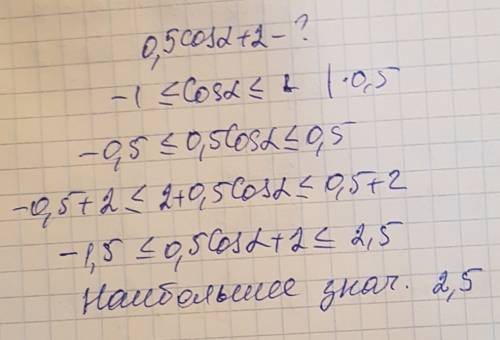 0,5cosα+2-?
-1 ≤ cosα ≤ 1 | ·0,5
-0,5 ≤ 0,5cosα ≤ 0,5
-0,5+2 ≤ 2+0,5cosα ≤ 0,5+2
-1,5 ≤ 0,5cosα+2 ≤ 2,5
Наибольшее знач. 2,5